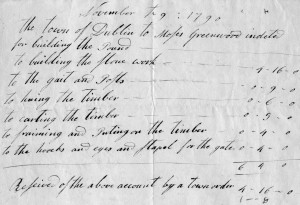 November the 9 : 1790
the town of Dublin to Moses Greenwood indeted
for building the Pound
to building the stone work — 4 - 16 - 0
to the gait an Posts — 0 - 9 - 0
to huing the timber — 0 - 6 - 0
to carting the timber — 0 - 9 - 0
to fraiming and Puting on the timber 0 - 4 - 0
to the hooks and eyes an Stapol for the gate 0 - 4 - 0
6 4 0
Received of the above account by a town order 4 - 16 - 0
1 - 8